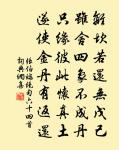 離坎若還無戊己
雖含四象不成丹
只緣彼此懷真土
遂使金丹有返還
張伯端絕句六十四首
詞典網集